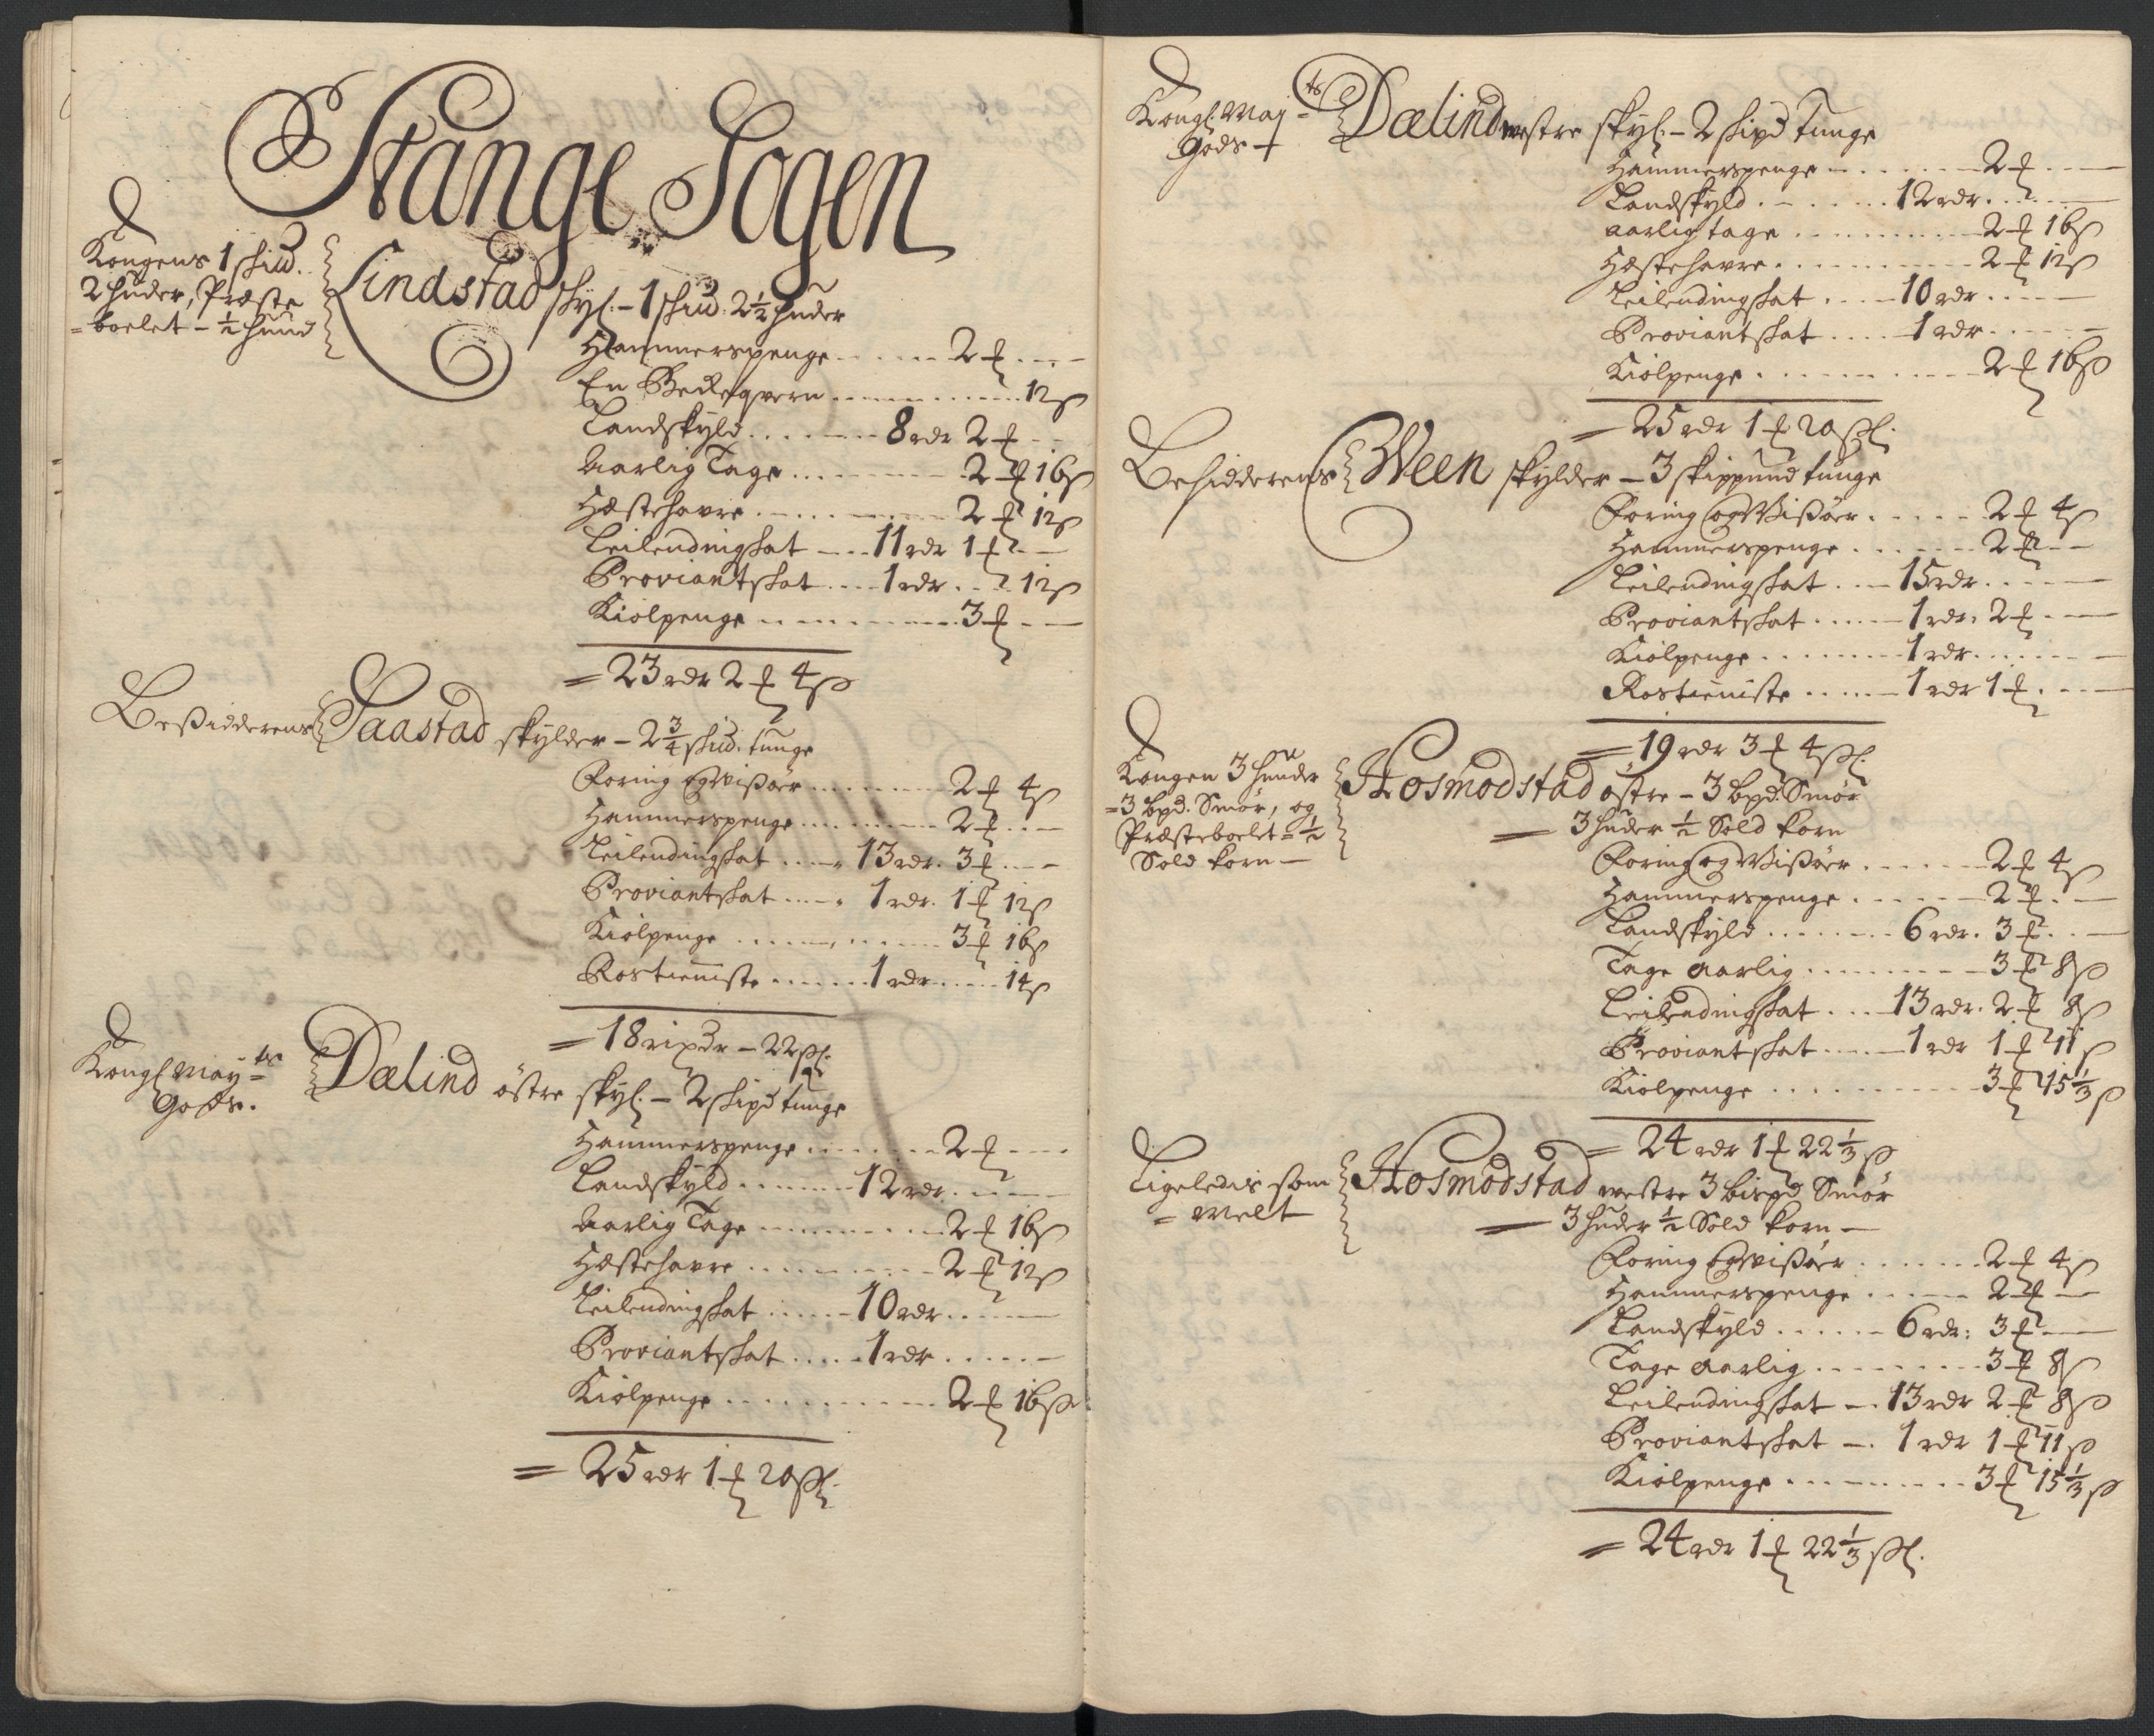 Stange Sogen
Kongens 1 skiud.
2 huder, Præste
=boelet - ½ huud
Lindstad skyl: - 1 skiud: 2½ huder
Hammerspenge ...... 2 ₰ ....
En Beckeqvern ............ 12 ß
Landskyld ........ 8 rdr 2 ₰ --
Aarlig Tage ........... 2 ₰ 16 ß
Hæstehavre ........... 2 ₰ 12 ß
Leilendingskat --- 11 rdr 1 ₰ --
Proviantskat ... 1 rdr ... 12 ß
Kiølpenge ............ 3 ₰ --
= 23 rdr 2 ₰ 4 ß
Beßidderens Saastad skylder - 2¾ skiud. tunge
Foring og Wißøer ........ 2 ₰ 4 ß
Hammerspenge ........ 2 ₰ ...
Leilendingskat .... 13 rdr. 3 ₰ ...
Proviantskat .... 1 rdr. 1 ₰ 12 ß
Kiølpenge ............ 3 ₰ 16 ß
Rostienniste ...... 1 rdr ..... 14 ß
= 18 rixdr - 22 ßl.
Kongl May=ts
Gods.
Dælind østre skyl: - 2 skipd tunge
Hammerspenge ........ 2 ₰ ....
Landskyld ...... 12 rdr. ....
Aarlig Tage ......... 2 ₰ 16 ß
Hæstehavre ......... 2 ₰ 12 ß
Leilendingskat ..... 10 rdr. ....
Proviantskat .... 1 rdr .....
Kiølpenge ............ 2 ₰ 16 ß
= 25 rdr 1 ₰ 20 ßl.
Kongl: May=ts
Gods +
Dælind westre skyl: - 2 skipd Tunge
Hammerspenge ........ 2 ₰ ....
Landskyld ...... 12 rdr. ....
aarlig tage ........... 2 ₰ 16 ß
Hæstehavre ........... 2 ₰ 12 ß
Leilendingskat .... 10 rdr .....
Proviantskat .... 1 rdr .....
Kiølpenge ............ 2 ₰ 16 ß
= 25 rdr 1 ₰ 20 ßl.
Besidderens Ween skylder - 3 skippund tunge
Foring og Wißøer ...... 2 ₰ 4 ß
Hammerspenge ....... 2 ₰ --
Leilendingskat ... 15 rdr. ....
Proviantskat ..... 1 rdr. 2 ₰ ...
Kiølpenge ........ 1 rdr. ......
Rostienniste ..... 1 rdr 1 ₰ ...
= 19 rdr 3 ₰ 4 ßl.
Kongen 3 huder
=3 bpd. Smør, og
Præsteboelet = ½
Sold korn -
Hosmodstad østre - 3 bpd: Smør
= 3 huder ½ Sold korn
Foring og Wißøer ...... 2 ₰ 4 ß
Hammerspenge ...... 2 ₰ --
Landskyld ........ 6 rdr. 3 ₰ ..
Tage aarlig .......... 3 ₰ 8 ß
Leilendingskat ... 13 rdr. 2 ₰ 8 ß
Proviantskat ..... 1 rdr 1 ₰ 11 ß
Kiølpenge ............ 3 ₰ 15⅓ ß
= 24 rdr 1 ₰ 22⅓ ß
Ligeledis som
= melt
Hosmodstad westre 3 bispd Smør
= 3 huder ½ Sold korn -
Foring og Wißøer ....... 2 ₰ 4 ß
Hammerspenge ...... 2 ₰ --
Landskyld ...... 6 rdr: 3 ₰ --
Tage aarlig .......... 3 ₰ 8 ß
Leilendingskat -. 13 rdr 2 ₰ 8 ß
Proviantskat -. 1 rdr 1 ₰ 11 ß
Kiølpenge ........... 3 ₰ 15⅓ ß
= 24 rdr 1 ₰ 22⅓ ßl.